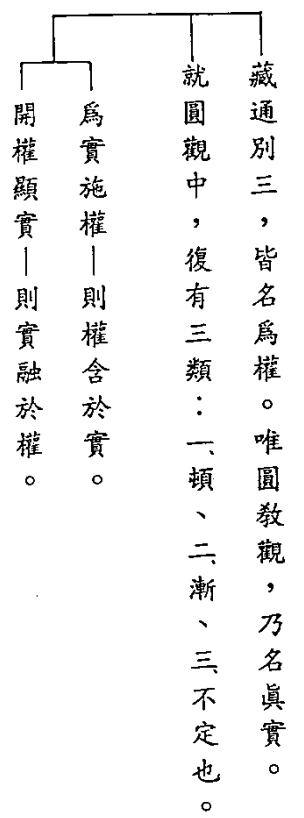 藏通別三，皆名爲權。唯圓教觀，乃名眞實。
就圓觀中，復有三類：一、頓、二、漸、三、不定也。
爲實施權—則權含於實。
開權顯實—則實融於權。